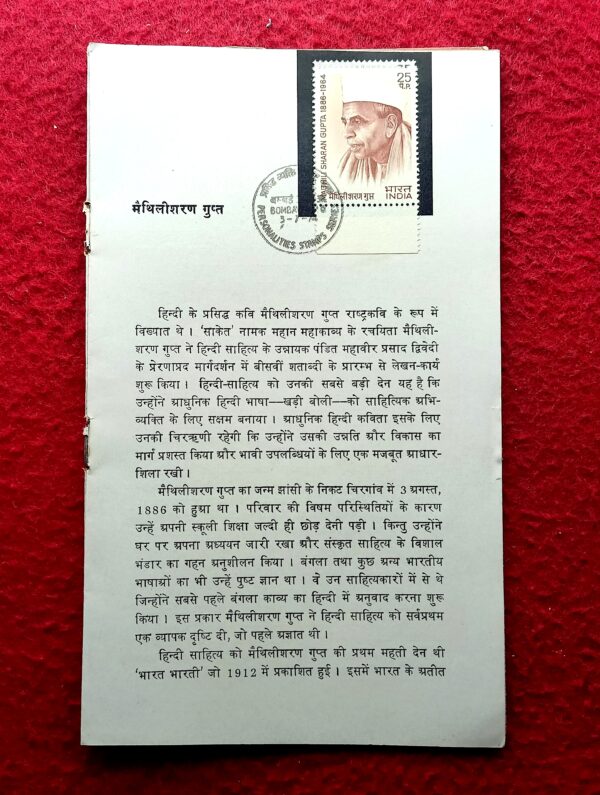 25
प.P.
MAITHILI SHARAN GUPTA 1886-1964
मैथिलीशरण गुप्त
भारत
INDIA
प्रसिद्ध व्यक्ति
बम्बई
BOMBAY
3-7-74
PERSONALITIES STAMPS SERIES
मैथिलीशरण गुप्त
हिन्दी के प्रसिद्ध कवि मैथिलीशरण गुप्त राष्ट्रकवि के रूप में
विख्यात थे । 'साकेत' नामक महान महाकाव्य के रचयिता मैथिली-
शरण गुप्त ने हिन्दी साहित्य के उन्नायक पंडित महावीर प्रसाद द्विवेदी
के प्रेरणाप्रद मार्गदर्शन में बीसवीं शताब्दी के प्रारम्भ से लेखन-कार्य
शुरू किया । हिन्दी-साहित्य को उनकी सबसे बड़ी देन यह है कि
उन्होंने आधुनिक हिन्दी भाषा—खड़ी बोली—को साहित्यिक अभि-
व्यक्ति के लिए सक्षम बनाया । आधुनिक हिन्दी कविता इसके लिए
उनकी चिरऋणी रहेगी कि उन्होंने उसकी उन्नति और विकास का
मार्ग प्रशस्त किया और भावी उपलब्धियों के लिए एक मजबूत आधार-
शिला रखी ।
मैथिलीशरण गुप्त का जन्म झांसी के निकट चिरगांव में 3 अगस्त,
1886 को हुआ था । परिवार की विषम परिस्थितियों के कारण
उन्हें अपनी स्कूली शिक्षा जल्दी ही छोड़ देनी पड़ी । किन्तु उन्होंने
घर पर अपना अध्ययन जारी रखा और संस्कृत साहित्य के विशाल
भंडार का गहन अनुशीलन किया । बंगला तथा कुछ अन्य भारतीय
भाषाओं का भी उन्हें पुष्ट ज्ञान था । वे उन साहित्यकारों में से थे
जिन्होंने सबसे पहले बंगला काव्य का हिन्दी में अनुवाद करना शुरू
किया । इस प्रकार मैथिलीशरण गुप्त ने हिन्दी साहित्य को सर्वप्रथम
एक व्यापक दृष्टि दी, जो पहले अज्ञात थी ।
हिन्दी साहित्य को मैथिलीशरण गुप्त की प्रथम महती देन थी
'भारत भारती' जो 1912 में प्रकाशित हुई । इसमें भारत के अतीत